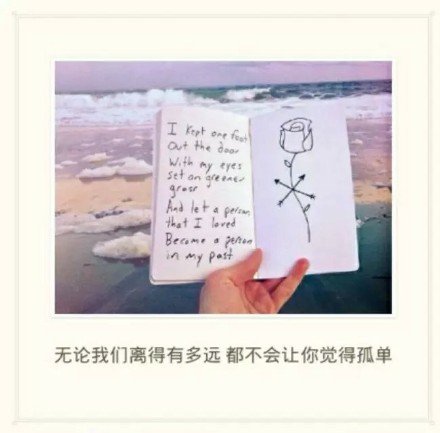 I kept one foot
Out the door
With my eyes
set on greener
grass
And let a person
that I loved
Become a person
in my past
无论我们离得有多远 都不会让你觉得孤单